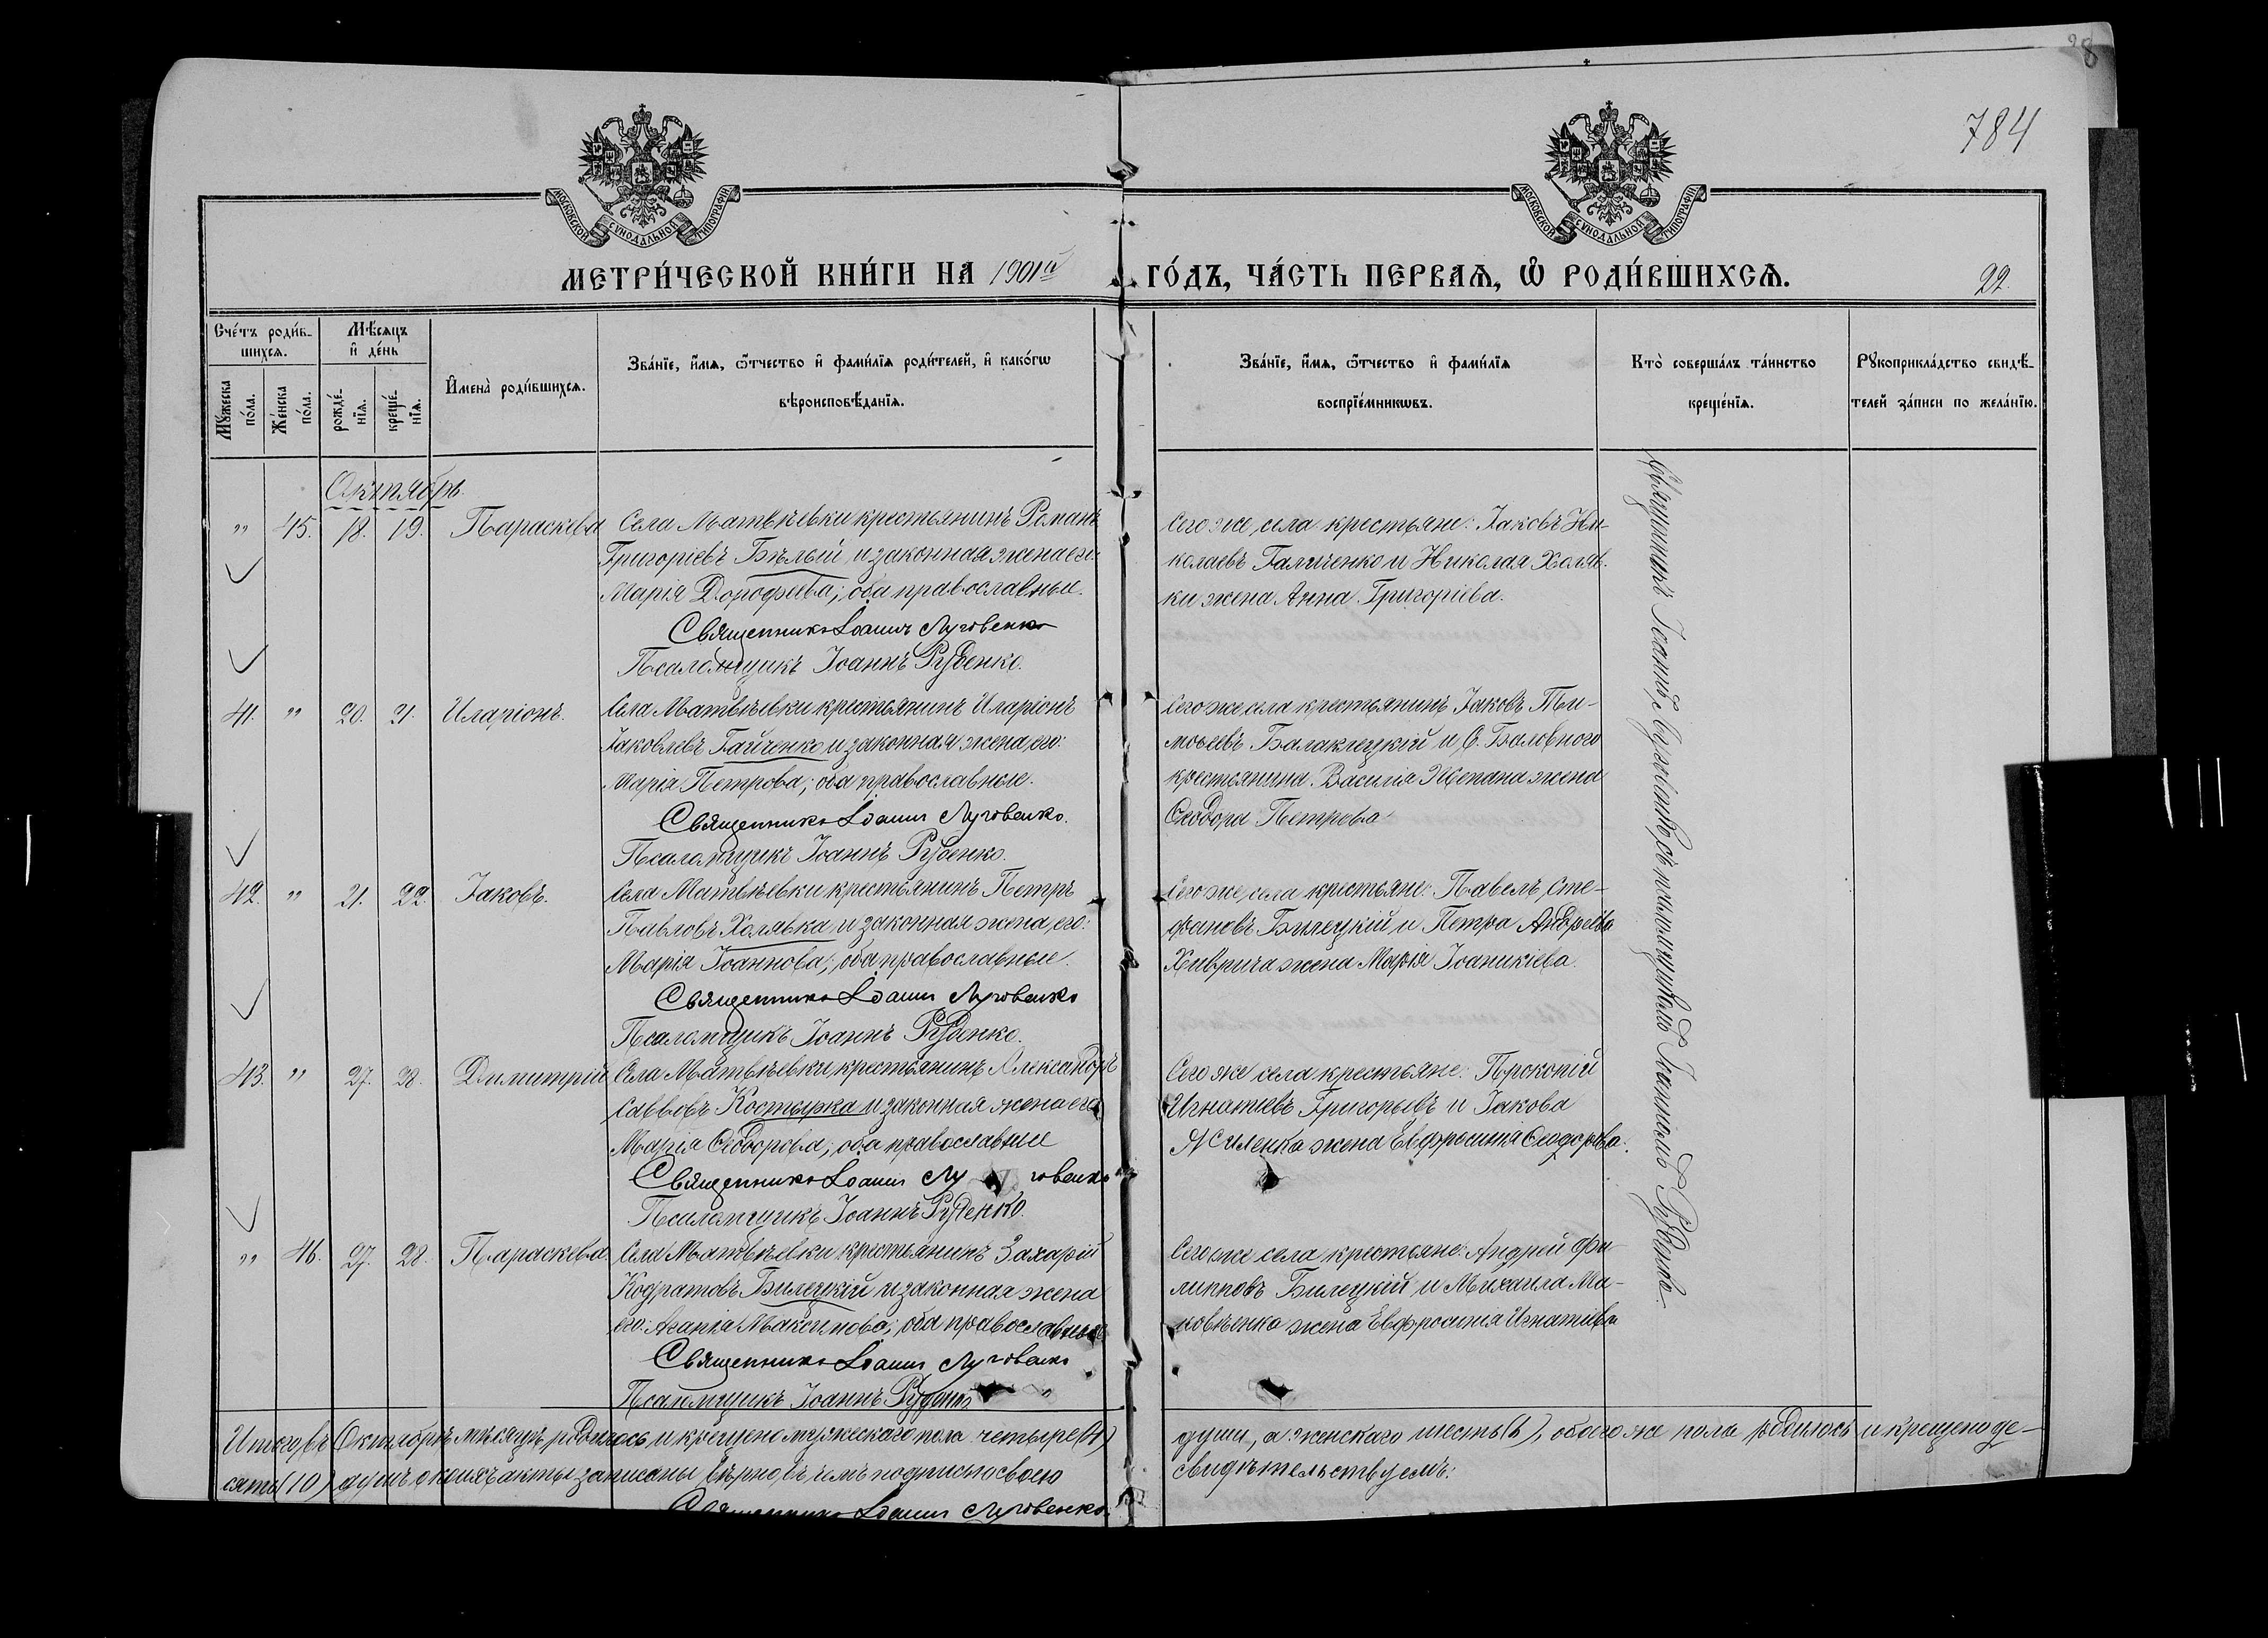 28
784
МОСКОВСКОЙ СѴНОДАЛЬНОЙ ТИПОГРАФІИ
МОСКОВСКОЙ СѴНОДАЛЬНОЙ ТИПОГРАФІИ
МЕТРИ́ЧЕСКОЙ КНИ́ГИ НА 1901й ГО́ДЪ, ЧА́СТЬ ПЕРВАѦ, Ѽ РОДИ́ВШИХСѦ.
22.
Сче́тъ роди́в-
шихсѧ.
Мѣ́сѧцъ
и҆ де́нь
Мꙋ́жеска
по́ла.
Же́нска
по́ла.
рожде́-
нїѧ.
креще́-
нїѧ.
И҆мена̀ роди́вшихсѧ.
Зва́нїе, и҆́мѧ, ѻ҆́тчество и҆ фами́лїѧ роди́телей, и҆ како́гѡ
вѣроисповѣ́данїѧ.
Зва́нїе, и҆́мѧ, ѻ҆́тчество и҆ фами́лїѧ
воспрїе́мникѡвъ.
Кто̀ соверша́лъ та́инство
креще́нїѧ.
Рꙋкоприкла́дство свидѣ́-
телей за́писи по жела́нїю.
Октябрь.
" 45. 18. 19. Параскева
Села Матвѣевки крестьянинъ Романъ
Григоріевъ Бѣлый и законная жена его:
Марія Дорофеева; оба православные.
Священникъ Іоаннъ Луговенко
Псаломщикъ Іоаннъ Руденко.
Сего же села крестьяне: Іаковъ Ни-
колаевъ Галиченко и Николая Холяв-
ки жена Анна Григоріева.
41. " 20. 21. Иларіонъ.
Села Матвѣевки крестьянинъ Иларіонъ
Іаковлевъ Гайченко и законная жена его:
Марія Петрова; оба православные.
Священникъ Іоаннъ Луговенко.
Псаломщикъ Іоаннъ Руденко.
Сего же села крестьянинъ Іаковъ Ти-
моѳеевъ Балаклецкій и С. Баловного
крестьянина Василія Жепана жена
Ѳеодора Петрова
42. " 21. 22. Іаковъ.
Села Матвѣевки крестьянинъ Петръ
Павловъ Холявка и законная жена его:
Марія Іоаннова; оба православные.
Священникъ Іоаннъ Луговенко
Псаломщикъ Іоаннъ Руденко.
Сего же села крестьяне: Павелъ Сте-
фановъ Билецкій и Петра Андреева
Хиврича жена Марія Іоаникіева.
43. " 27. 28. Димитрій
Села Матвѣевки крестьянинъ Александръ
Саввовъ Костырка и законная жена его
Марія Ѳеодорова; оба православные
Священникъ Іоаннъ Луговенко
Псаломщикъ Іоаннъ Руденко.
Сего же села крестьяне: Прокопій
Игнатіевъ Григорьевъ и Іакова
жена Евфросинія Ѳеодорова.
" 46. 27. 28. Параскева.
Села Матвѣевки крестьянинъ Захарій
Кодратовъ Билецкій и законная жена
его: Агапія Максимова; оба православные
Священникъ Іоаннъ Луговенко
Псаломщикъ Іоаннъ Руденко
Сего же села крестьяне: Андрей Фи-
липповъ Билецкій и Михаила Ма-
жена Евфросинія Игнатіева
Священникъ Іоаннъ Луговенко, съ псаломщикомъ Іоанномъ Руденко.
Итого въ Октябрѣ мѣсяцѣ родилось и крещено мужескаго пола четыре (4) души, а женскаго шесть (6), обоего же пола родилось и крещено де-
сять (10) душъ о коихъ акты записаны вѣрно въ чемъ подписью своею свидѣтельствуемъ:
Священникъ Іоаннъ Луговенко.